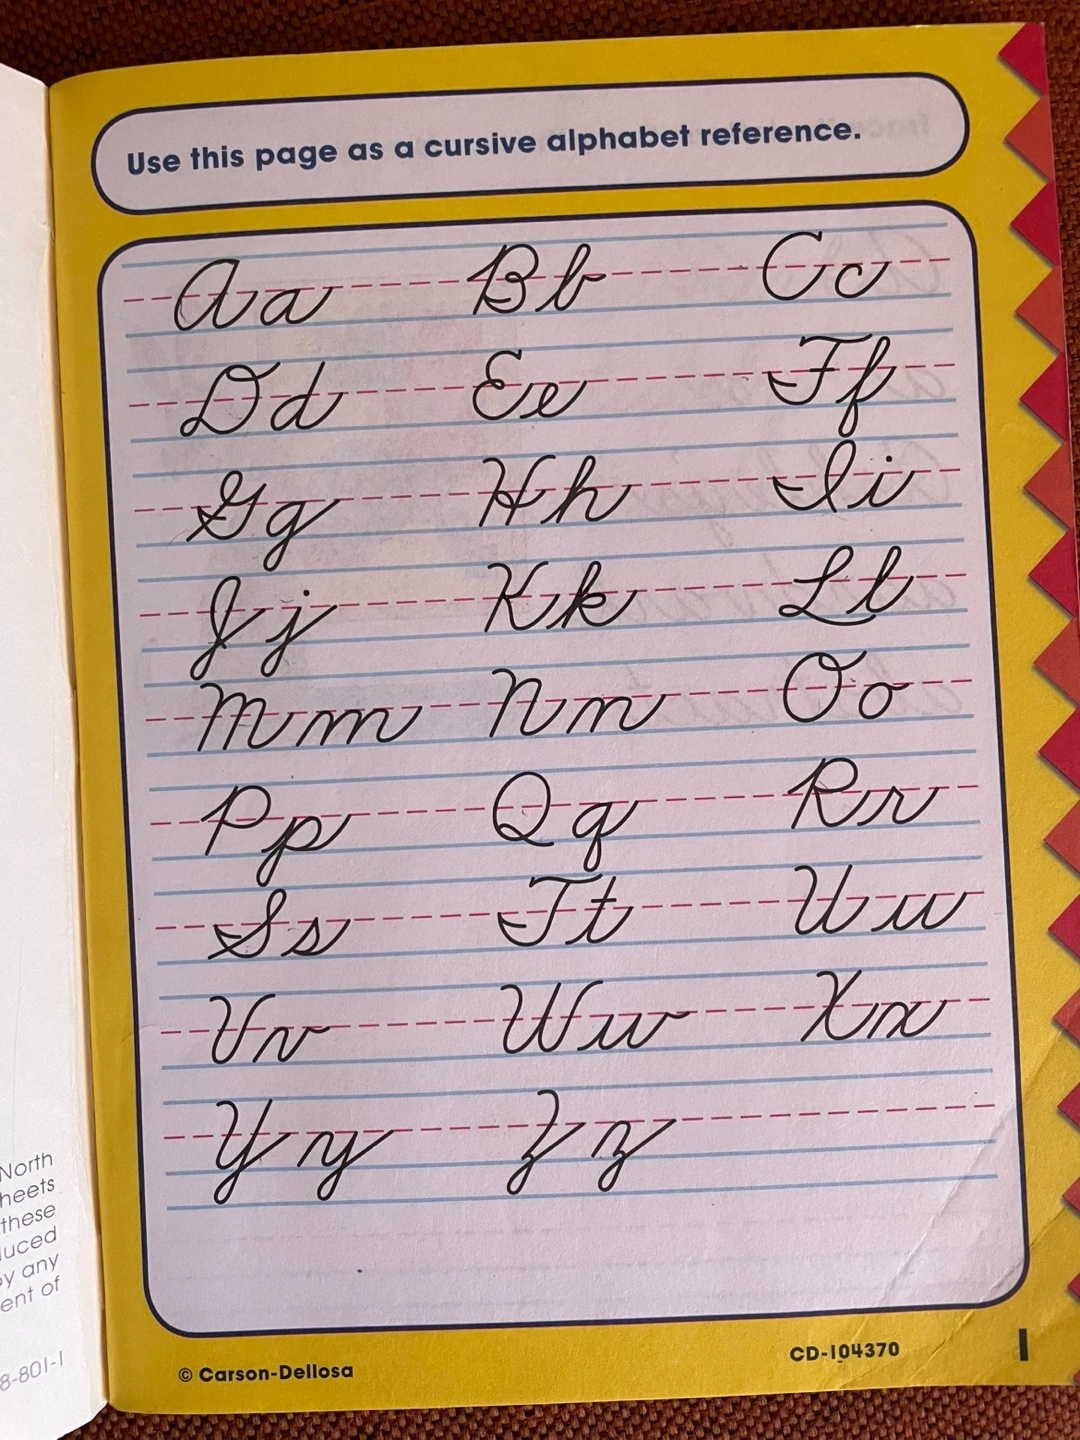 Use this page as a cursive alphabet reference.
Aa Bb Cc
Dd Ee Ff
Gg Hh Ii
Jj Kk Ll
Mm Nn Oo
Pp Qq Rr
Ss Tt Uu
Vv Ww Xx
Yy Zz
North
heets
these
luced
by any
ent of
8-801-1
© Carson-Dellosa
CD-104370
1